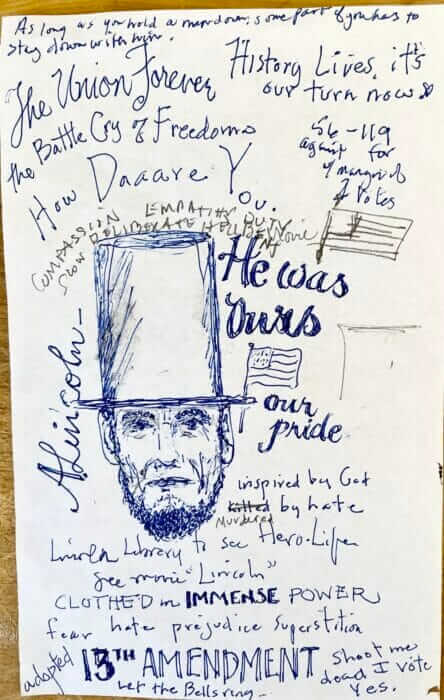 As long as you hold a man down, some part of you has to
stay down with him.
The Union Forever
History Lives, it's
our turn now
the Battle Cry of Freedom
56-119
against for
4 majority
2 Votes
How Daaare
You.
COMPASSION EMPATHY DUTY
SLOW DELIBERATE
Movie
He was
Ours
our
pride
A Lincoln
inspired by God
killed by hate
Murdered
Lincoln Library to see Hero-Life
see movie "Lincoln"
CLOTHED in IMMENSE POWER
fear hate prejudice Superstition
adopted
13TH AMENDMENT
Shoot me
dead I vote
Yes.
Let the Bells ring